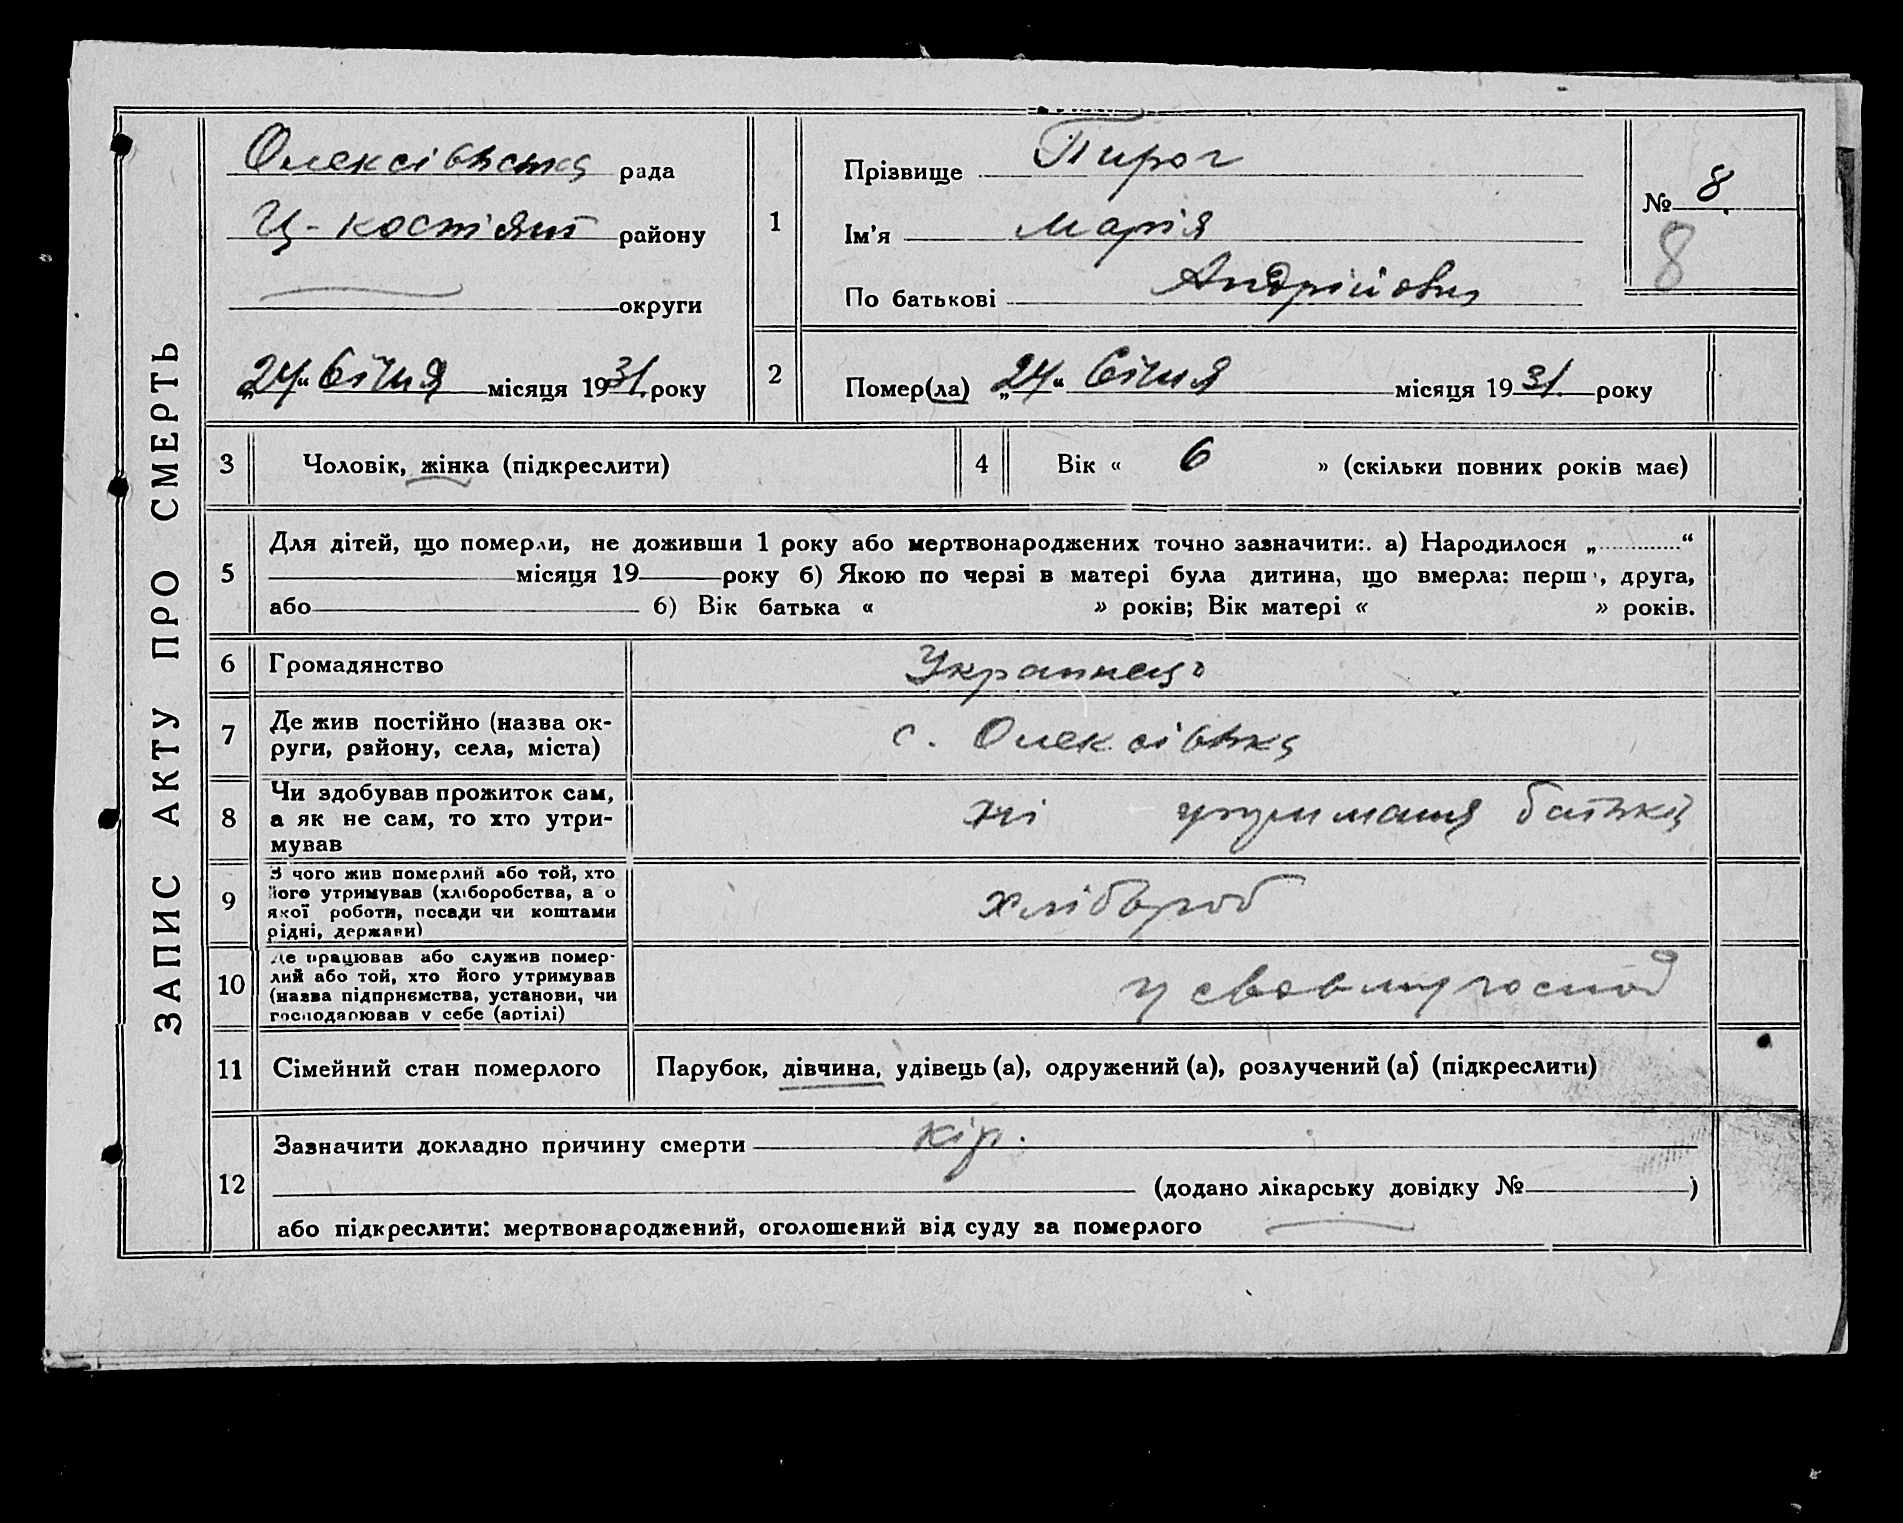 ЗАПИС АКТУ ПРО СМЕРТЬ
Олексівська рада
Ц-костянт району
округи
„24“ Січня місяця 1931 року
1
Прізвище Пирог
Ім’я Марія
По батькові Андрійовна
№ 8
8
2
Помер(ла) „24“ Січня місяця 1931 року
3 Чоловік, жінка (підкреслити)
4 Вік « 6 » (скільки повних років має)
5
Для дітей, що померли, не доживши 1 року або мертвонароджених точно зазначити:. а) Народилося „ “
місяця 19 року б) Якою по черзі в матері була дитина, що вмерла: перш, друга,
або б) Вік батька « » років; Вік матері « » років.
6 Громадянство
7 Де жив постійно (назва ок-
руги, району, села, міста)
с. Олексівка
8 Чи здобував прожиток сам,
а як не сам, то хто утри-
мував
ні утримання батька
9 З чого жив померлий або той, хто
його утримував (хліборобства, а о
якої роботи, посади чи коштами
рідні, держави)
хлібороб
10 Де працював або служив помер-
лий або той, хто його утримував
(назва підприємства, установи, чи
господарював у себе (артілі)
у своєму господ
11 Сімейний стан померлого
Парубок, дівчина, удівець (а), одружений (а), розлучений (а) (підкреслити)
12
Зазначити докладно причину смерти кір.
(додано лікарську довідку № )
або підкреслити: мертвонароджений, оголошений від суду за померлого